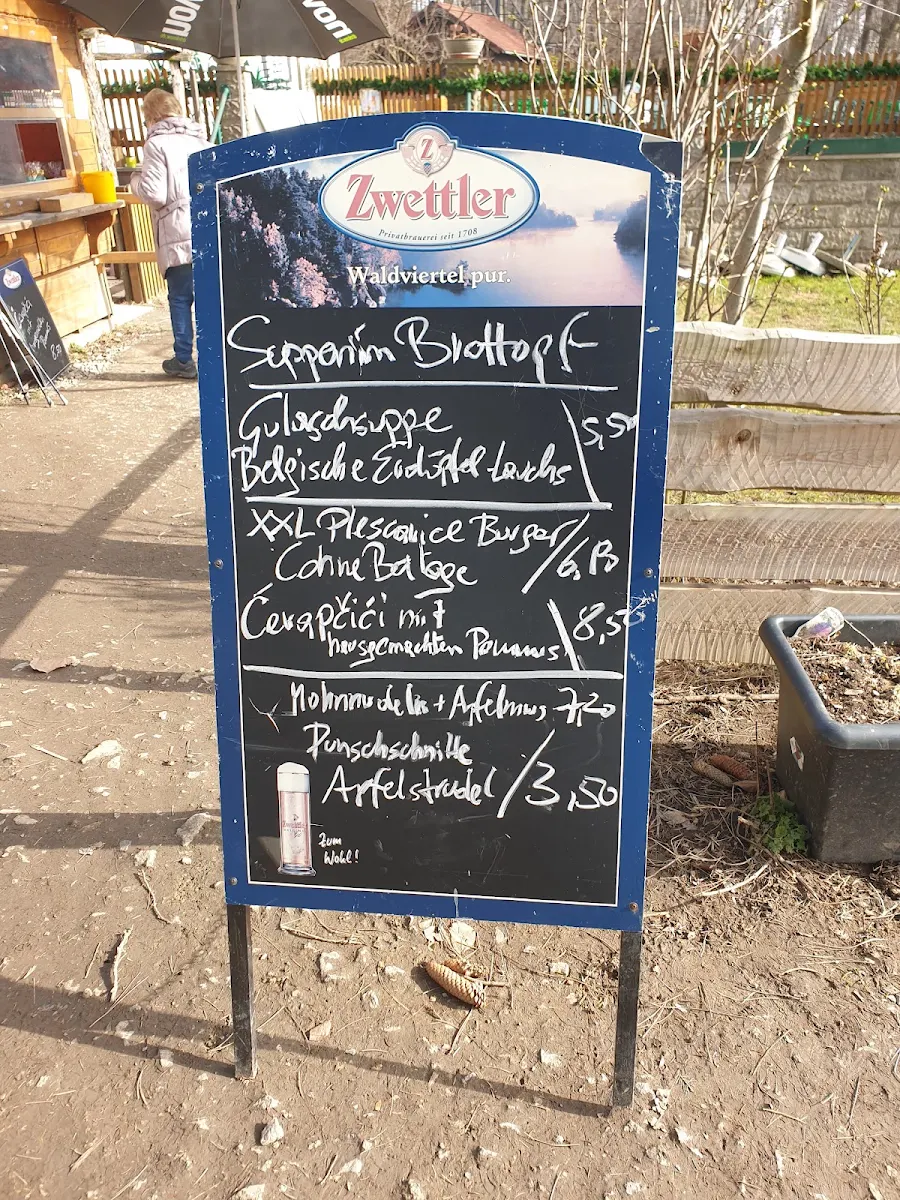 von
von
Z
Zwettler
Privatbrauerei seit 1708
Waldviertel pur.
Suppen im Brottopf
Gulaschsuppe
Belgische Erdäpfel-Lauchs
5,50
XXL Pljeskavice Burger
(ohne Beilage
Ćevapčići mit
8,50
hausgemachten Pommes
Mohnnudeln + Apfelmus 7,20
Punschschnitte
Apfelstrudel / 3,50
Zwettler
Zum
Wohl!